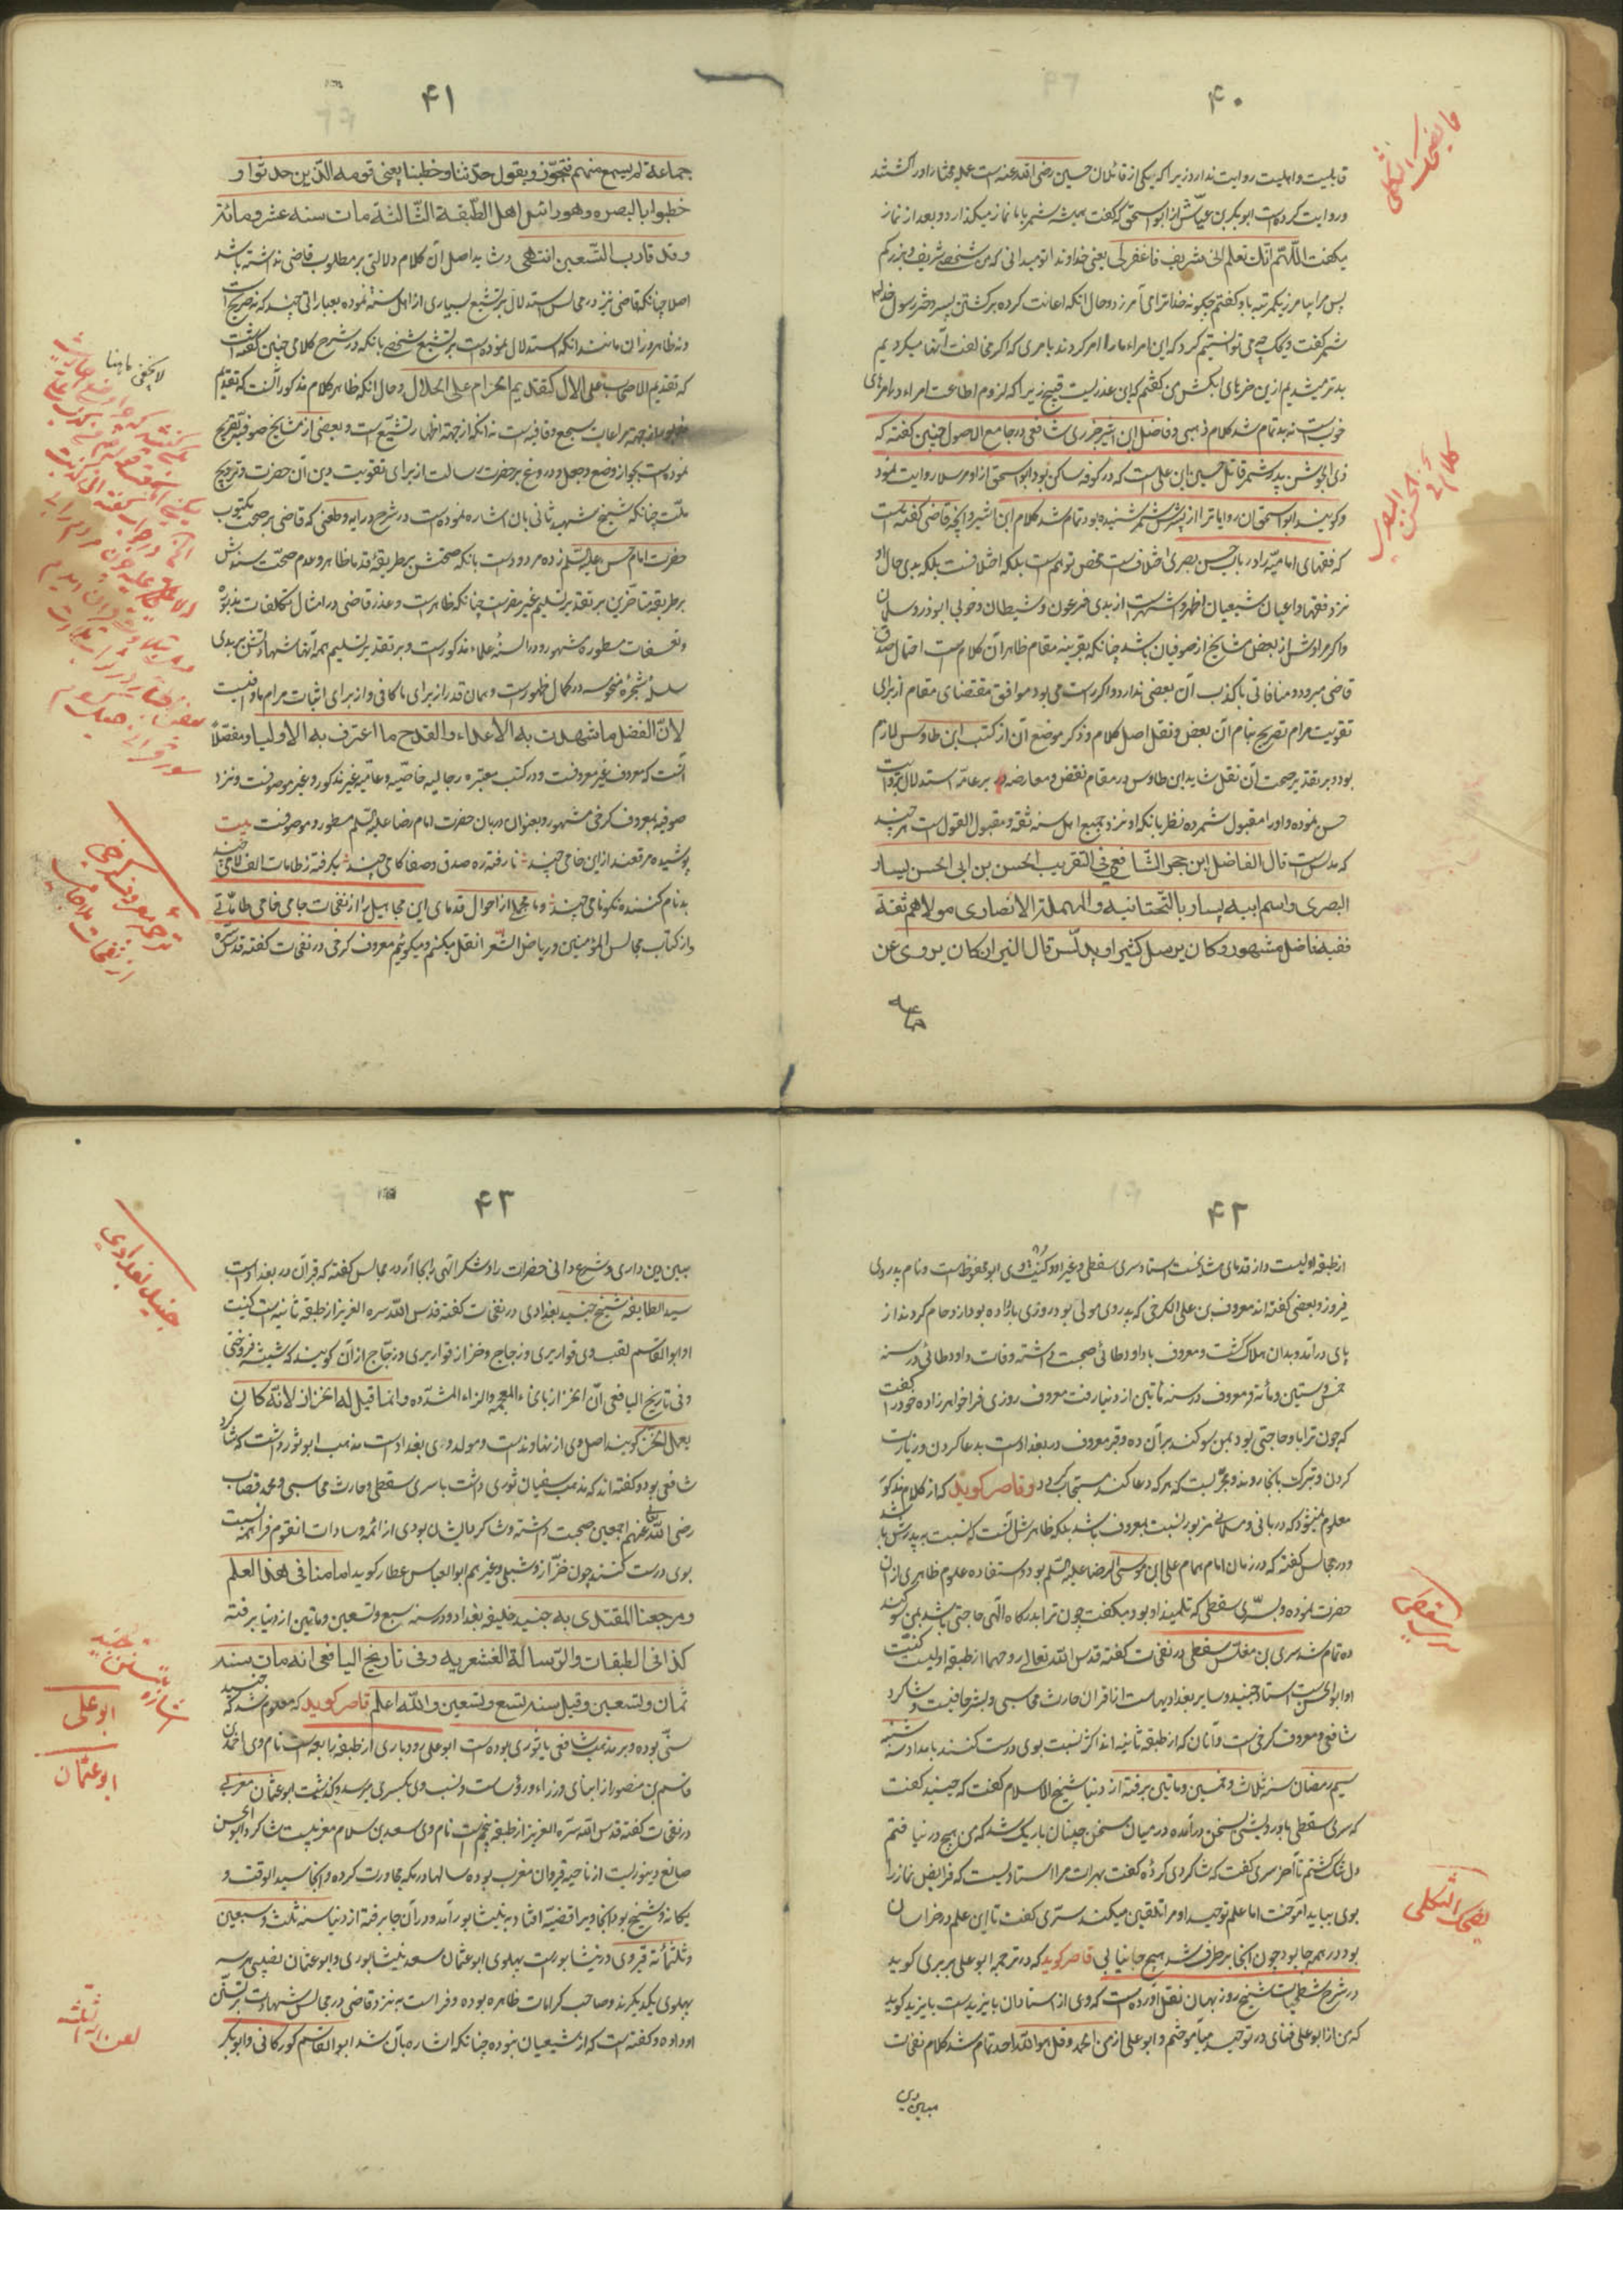 ۴۰
ما یضحک الثکلی
قابلیت و اهلیت روایت ندارد زیرا که یکی از قاتلان حسین رضی الله عنه است علیه مختار او را کشتند
و روایت کرده است ابوبکر بن عیاش از ابو اسحق که گفت همیشه شمر با ما نماز میگذارد و بعد از نماز
یکفت اللّهم انّک تعلم انی شریف فاغفر لی یعنی خداوندا تو میدانی که من شخصی شریف و بزرگم
پس مرا بیامرز یکمرتبه باو گفتم چگونه خدا ترا می آمرزد و حال آنکه اعانت کرده بر کشتن پسر دختر رسول خدا
شمر گفت ویحک چه می توانستیم کرد که این امراء ما را امر کردند بامری که اگر مخالفت آنها میکردیم
بدتر میشدیم ازین خرهای آبکش من گفتم که این عذریست قبیح زیرا که لزوم اطاعت امراء در امرهای
خوب است نه بد تمام شد کلام ذهبی و فاضل ابن اثیر جزری شافعی در جامع الاصول چنین گفته که
ذی الجوشن پدر شمر قاتل حسین ابن علی است که در کوفه ساکن بود ابو اسحق از او مرسلا روایت نمود
و گویند ابو اسحق آن روایات را از پسرش شمر شنیده بود تمام شد کلام ابن اثیر و آنچه قاضی گفته است
که فقهای امامیه را در باب حسن بصری اختلاف است محض توهم است بلکه اختلاف نیست بلکه بدی حال او
نزد فقها و اعیان شیعیان اظهر و اشهر است از بدی فرعون و شیطان و خوبی ابوذر و سلمان
و اگر مرادش از بعض مشایخ از صوفیان باشد چنانکه بقرینه مقام ظاهر آن کلام است احتمال صدق
قاضی میرود و منافاتی با کذب آن بعضی ندارد و اگر راست می بود موافق مقتضای مقام از برای
تقویت مرام تصریح بنام آن بعض و نقل اصل کلام و ذکر موضع آن از کتب ابن طاوس لازم
بود و بر تقدیر صحت آن نقل شاید ابن طاوس در مقام نقض و معارضه بر عامّه استدلال بروایت
حسن نموده و او را مقبول شمرده نظر بانکه او نزد جمیع اهل سنه ثقه و مقبول القول است هر چند
که مدلس است قال الفاضل ابن حجر الشافعی فی التقریب الحسن بن ابی الحسن یسار
البصری و اسم ابیه یسار بالتّحتانیه والمهملة الانصاری مولاهم ثقة
فقیه فاضل مشهور و کان یرسل کثیرا و یدلّس قال البزار کان یروی عن
جماعة
۴۱
جماعة لم یسمع منهم فتجوّز و یقول حدّثنا و خطبنا یعنی قومه الذین حدثوا و
خطبوا بالبصره و هو راس اهل الطّبقة الثّالثة مات سنه عشر و مائة
و قد قارب التّسعین انتهی و شاید اصل آن کلام دلالتی بر مطلوب قاضی نداشته باشد
اصلا چنانکه قاضی نیز در مجالس استدلال بر تشیع بسیاری از اهل سنت نموده بعباراتی چند که نه صریح است
و نه ظاهر و زان مانند آنکه استدلال نموده است بر تشیع شخصی بانکه در شرح کلامی چنین گفته است
که تقدیم الاصحاب علی الال کتقدیم الحرام علی الحلال و حال آنکه ظاهر کلام مذکور آنست که تقدیم
از جهة مراعات سجع و قافیه است نه آنکه از جهة اظهار تشیّع است و بعضی از مشایخ صوفیه تصریح
نموده است بجواز وضع و جعل و دروغ بر حضرت رسالت از برای تقویت دین آن حضرت و ترویج
ملّت چنانکه شیخ شهید ثانی بان اشاره نموده است در شرح درایه و طعنی که قاضی بر صحت مکتوب
حضرت امام حسن علیه السّلم زده مردود است بانکه صحتش بر طریقهٔ قدما ظاهر و عدم صحّت سندش
بر طریقه متاخرین بر تقدیر تسلیم غیر مضر است چنانکه ظاهر است و عذر قاضی در امثال تکلفات مذبوره
و تعسفات مسطوره مشهور و در السنهٔ علماء مذکور است و بر تقدیر تسلیم همه آنها شهادتش بر بدی
سلسلهٔ شجرهٔ منحوسه در کمال ظهور است و همان قدر از برای ما کافی و از برای اثبات مرام ما وافیست
لانّ الفضل ما شهدت به الاعداء والقدح ما اعترف به الاولیا و مفصّلاً
آنست که معروف غیر معروفست و در کتب معتبره رجالیه خاصّیه و عامّیه غیر مذکور و غیر موصوفست و نزد
صوفیه بمعروف کرخی مشهور و بعنوان دربان حضرت امام رضا علیه السّلم مسطور و موصوفست بیت
پوشیده مرقعند ازین خامی چند نارفته ره صدق و صفا گامی چند بگرفته ز طامات الف لامی چند
بدنام کنندهٔ نکو نامی چند و ما مجملا از احوال قدمای این مجاهیل را از نفحات جامی خامی طامّاتی
و از کتاب مجالس المؤمنین و ریاض الشعرا نقل میکنم و میگوئیم معروف کرخی در نفحات گفته قدس سرّه
لا یخفی ما هنا
ترجمهٔ معروف کرخی
از نفحات ملا جامی
۴۲
از طبقه اولیست و از قدمای مشایخست استاد سری سقطی و غیر او و کنیت وی ابو محفوظ است و نام پدر وی
فیروز و بعضی گفته اند معروف بن علی الکرخی که پدر وی مولی بود و روزی بازداده بود ازدحام کردند از
پای درآمد و بدان هلاک گشت و معروف با داود طائی صحبت داشته وفات داود طائی در سنه
خمس و ستین و مأئه و معروف در سنه مأتین از دنیا رفت معروف روزی فرا خواهرزاده خود را گفت
که چون ترا با او حاجتی بود بمن سوگند بر آن ده و قبر معروف در بغداد است بدعا کردن و زیارت
کردن و تبرک بانجا روند و مجرّبست که هر که دعا کند مستجاب گردد و قاصر گوید که از کلام مذکور
معلوم میشود که دربانی و مسلمانی مزبور نسبت بمعروف باشد بلکه ظاهرش آنست که نسبت به پدرش باشد
و در مجالس گفته که در زمان امام همام علی ابن موسی الرضا علیه السّلم بود و استفاده علوم ظاهری از ان
حضرت نموده و بسرّی سقطی که تلمیذ او بود میگفت چون ترا بدرگاه الهی حاجتی باشد بمن سوگند
ده تمام شد سری بن مغلّس سقطی در نفحات گفته قدس الله تعالی روحهما از طبقه اولیست کنیت
او ابو الحسن است استاد جنید و سایر بغدادیهاست از اقران حارث محاسبی و بشر حافیست و شاگرد
شافعی و معروف کرخی است و آنان که از طبقه ثانیه اند اکثر نسبت بوی درست کنند بامداد سه شنبه
سیم رمضان سنه ثلاث و خمسین و ماتین برفته از دنیا شیخ الاسلام گفت که جنید گفت
که سری سقطی با درویشی بسخن درآمده در میان سخن چنان باریک شد که من هیچ درنیافتم
دل تنگ گشتم تا آخر سری گفت که شاگردی کرده گفت بهرات مرا استادیست که فرایض نماز را
بوی بباید آموخت اما علم توحید او مرا تلقین میکند سرّی گفت تا این علم در خراسان
بود در همه جا بود چون انجا برطرف شد هیچ جا نیابی قاصر گوید که در ترجمه ابو علی بربری گوید
در شرح شطحیات شیخ روزبهان نقل آورده است که وی از استادان بایزید است بایزید گوید
که من از ابو علی فنای در توحید می آموختم و ابو علی از من الحمد و قل هو الله احد تمام شد کلام نفحات
یضحک الثکلی
۴۳
مبین دین داری و شرع دانی حضرات را و شکر الهی را بجا آر و در مجالس گفته که قبر آن در بغداد است
سید الطایفه شیخ جنید بغدادی در نفحات گفته قدس الله سره العزیز از طبقه ثانیه است کنیت
او ابو القاسم لقب وی قواریری و زجاج و خزاز قواریری و زجّاج از آن گویند که شیشه فروختی
و فی تاریخ الیافعی انّ الخزاز بالخاء المعجمه والزاء المشدّده و انما قیل له الخزاز لانّه کان
یعمل الخزّ گویند اصل وی از نهاوند است و مولد وی بغداد است مذهب ابو ثور داشت که شاگرد
شافعی بود و گفته اند که مذهب سفیان ثوری داشت با سری سقطی و حارث محاسبی و محمد قصاب
رضی الله عنهم اجمعین صحبت داشته و شاگرد ایشان بود وی از ائمه و سادات این قوم فرا نسبت
بوی درست کنند چون خرّاز و شبلی و غیرهم ابو العباس عطار گوید امامنا فی هذا العلم
و مرجعنا المقتدی به جنید خلیفه بغداد و در سنه سبع و تسعین و ماتین از دنیا برفته
کذا فی الطبقات والرّسالة القشیریه و فی تاریخ الیافعی انه مات سنه
ثمان و تسعین و قیل سنه تسع و تسعین والله اعلم قاصر گوید که معلوم شد که جنید
سنّی بوده و بر مذهب شافعی یا ثوری بوده است ابو علی رودباری از طبقه رابعه است نام وی احمد بن
قاسم بن منصور از ابنای وزراء و رؤساست و نسب وی بکسری میرسد و گذشت ابو عثمان مغربی
در نفحات گفته قدس الله سرّه العزیز از طبقه پنجم است نام وی سعید بن سلام مغربیست شاگرد ابو الحسن
صایغ دینوریست از ناحیه قیروان مغرب بوده سالها در مکه مجاورت کرده و آنجا سید الوقت و
یگانه شیخ بود آنجا ویرا قضیّه افتاد به نیشابور آمد و در آن جا برفته از دنیا سنه ثلث و سبعین
و ثلثمأئة قبر وی در نیشابور است پهلوی ابو عثمان سعید نیشابوری و ابو عثمان نصیبی هر سه
پهلوی یکدیگرند و صاحب کرامات ظاهره بوده و فراست به نزد قاضی در مجالس شهادت بر تسنّن
او داده و گفته است که از شیعیان نبوده چنانکه اشاره بآن شد ابو القاسم گورکانی و ابوبکر
جنید بغدادی
ابو علی
ابو عثمان